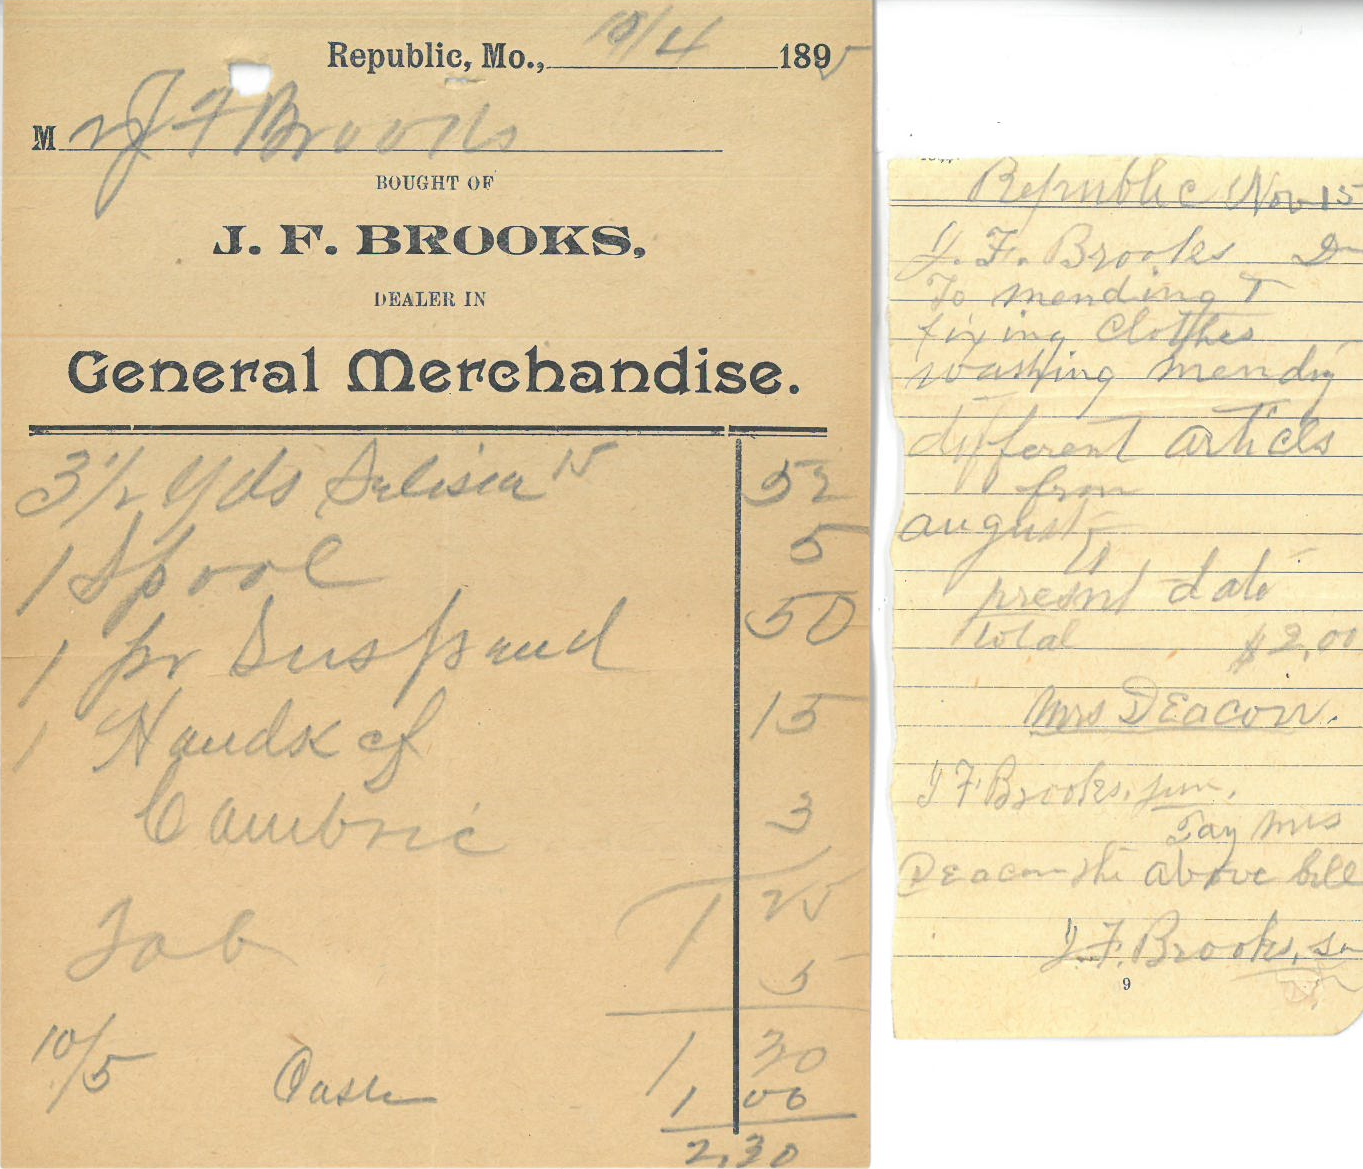 Republic, Mo., 10/4 1895
Mr J F Brooks
BOUGHT OF
J. F. BROOKS,
DEALER IN
General Merchandise.
3 1/2 Yds Silisia 15 52
1 Spool 5
1 pr Suspand 50
1 Handkcf 15
Cambric 3
1 25
Tab 5
1 30
10/5 Cash 1 00
2.30
Republic Nov 15
J. F. Brooks Dr
To mending &
fixing Clothes
washing mending
different articls
from
august
to
present date
total $2,00
Mrs DEacon.
J F Brooks, jun,
Pay Mrs
DEacon the above bill
J. F. Brooks, Sr
9